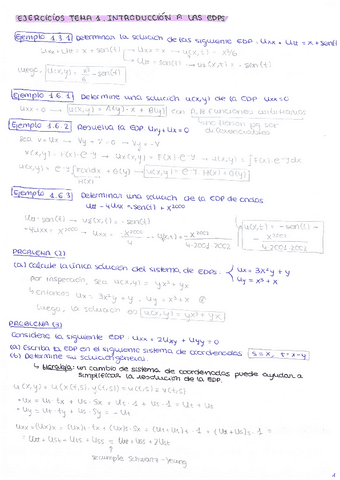 EJERCICIOS TEMA 1. INTRODUCCIÓN A LAS EDPS
Ejemplo 1.3.1 Determinan la solución de las siguiente EDP: Uxx + Utt = x + sen(t)
Uxx + Utt = x + sen(t) → Uxx = x → u₁(x,t) = x³/6
→ Utt = sen(t) → u₂(x,t) = -sen(t)
Luego, u(x,y) = x³/6 - sen(t)
Ejemplo 1.6.1 Determine una solución u(x,y) de la EDP Uxx = 0
Uxx = 0 → u(x,y) = A(y)·x + B(y) con A,B funciones arbitrarias
no tienen pq ser diferenciables
Ejemplo 1.6.2 Resuelva la EDP Uxy + Ux = 0
Sea V = Ux → Vy + V = 0 → Vy = -V
V(x,y) = F(x)·e^-y → Ux(x,y) = F(x)·e^-y → u(x,y) = ∫F(x)·e^-y dx
u(x,y) = e^-y ∫F(x)dx + G(y) → u(x,y) = e^-y·H(x) + G(y)
H(x)
Ejemplo 1.6.3 Determinan una solución de la EDP de ondas
Utt - 4Uxx = sen(t) + x^2000
Utt = sen(t) → u₁(x,t) = -sen(t)
-4Uxx = x^2000 → Uxx = -x^2000/4 → u₂(x,t) = -x^2002/4·2001·2002
u(x,t) = -sen(t) - x^2002/4·2001·2002
PROBLEMA (2)
(a) Calcule la única solución del sistema de EDPs: { Ux = 3x²y + y
Uy = x³ + x
por inspección, sea u(x,y) = yx³ + yx
↳ Entonces Ux = 3x²y + y, Uy = x³ + x
Luego, la solución es u(x,y) = yx³ + yx
PROBLEMA (3)
Considere la siguiente EDP: Uxx + 2Uxy + Uyy = 0
(a) Escriba la EDP en el siguiente sistema de coordenadas s = x, t = x-y
(b) Determine su solución general.
↳ Moraleja: un cambio de sistema de coordenadas puede ayudar a
simplificar la resolución de la EDP.
u(x,y) = u(x(t,s), y(t,s)) = u(t,s) = v(t,s)
• Ux = Ut·tx + Us·sx = Ut·1 + Us·1 = Ut + Us
• Uy = Ut·ty + Us·sy = -Ut
Uxx = (Ux)x = (Ux)t·tx + (Ux)s·sx = (Ut + Us)t·1 + (Ut + Us)s·1 =
= Utt + Ust + Uts + Uss = Utt + Uss + 2Ust
se cumple Schwarz-Young